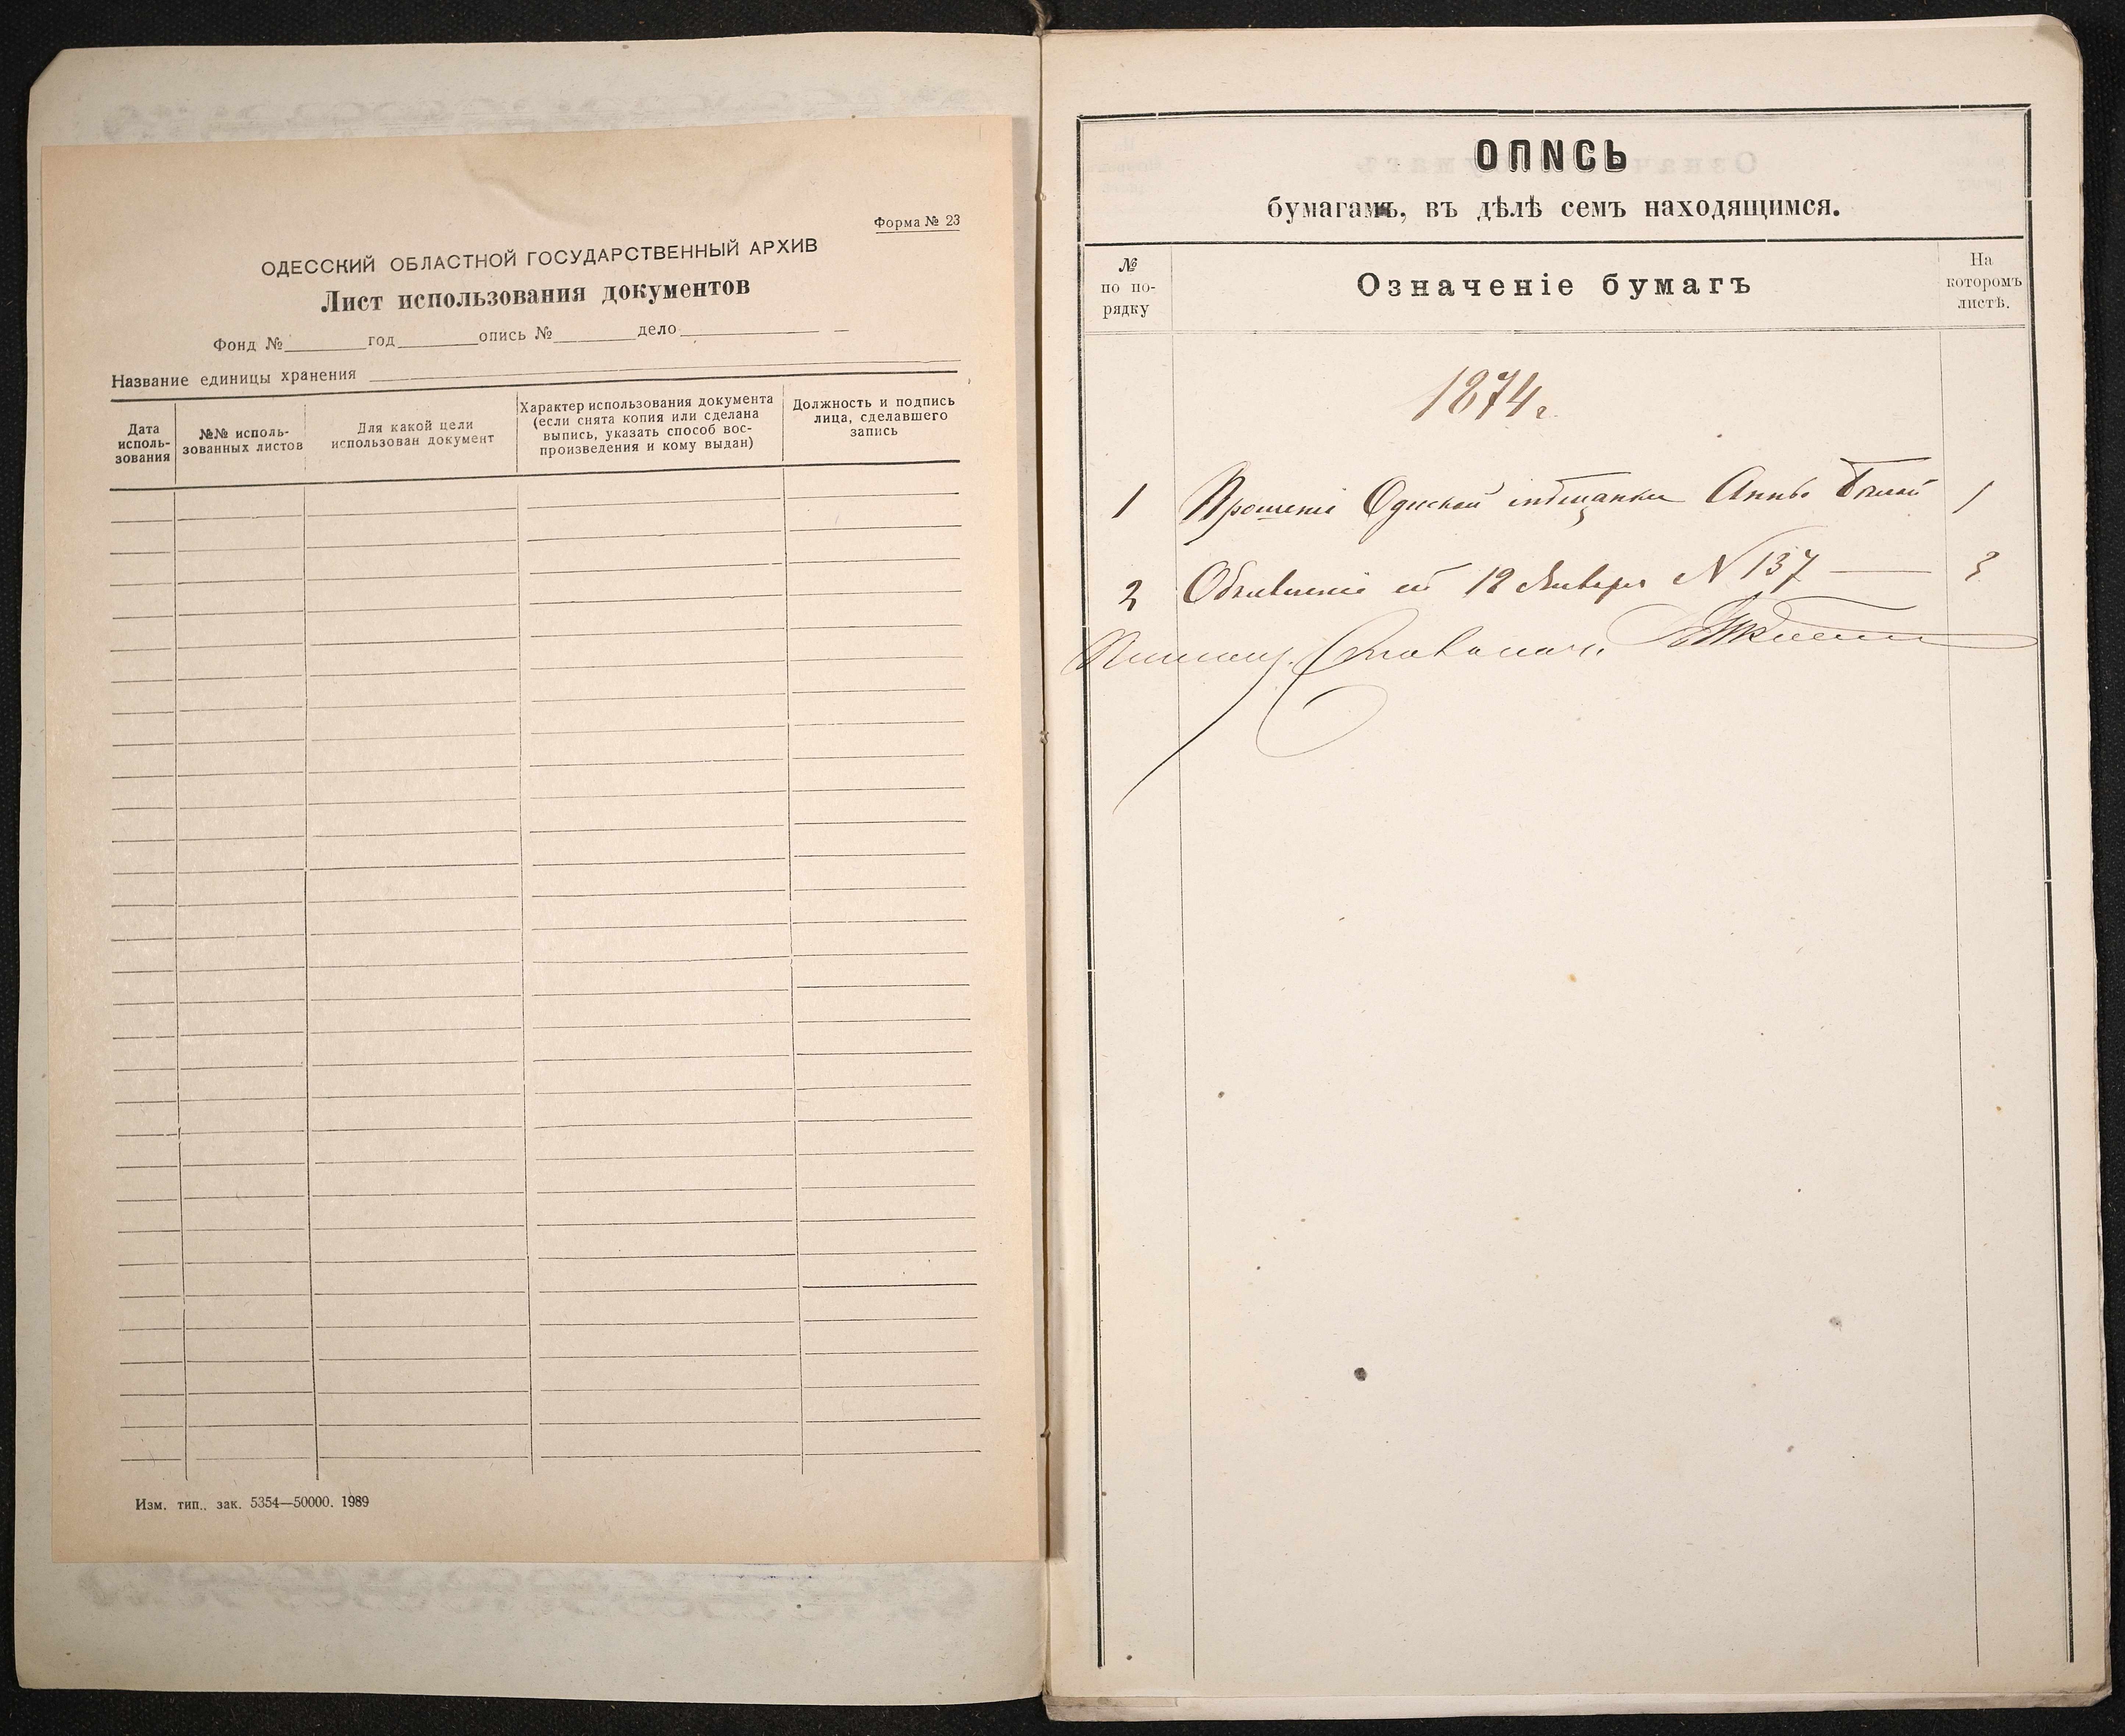 Форма № 23
ОДЕССКИЙ ОБЛАСТНОЙ ГОСУДАРСТВЕННЫЙ АРХИВ
Лист использования документов
Фонд № год опись № дело
Название единицы хранения
Дата исполь-
зования
№№ исполь-
зованных листов
Для какой цели
использован документ
Характер использования документа
(если снята копия или сделана
выпись, указать способ вос-
произведения и кому выдан)
Должность и подпись
лица, сделавшего
запись
Изм. тип., зак. 5354—50000. 1989
ОПИСЬ
бумагамъ, въ дѣлѣ семъ находящимся.
№
по по-
рядку
Означеніе бумагъ
На
которомъ
листѣ.
1874 г.
1 Прошеніе Одесской мѣщанки Анны Бѣлой 1
2 Объявленіе отъ 12 Января N 137 — 3